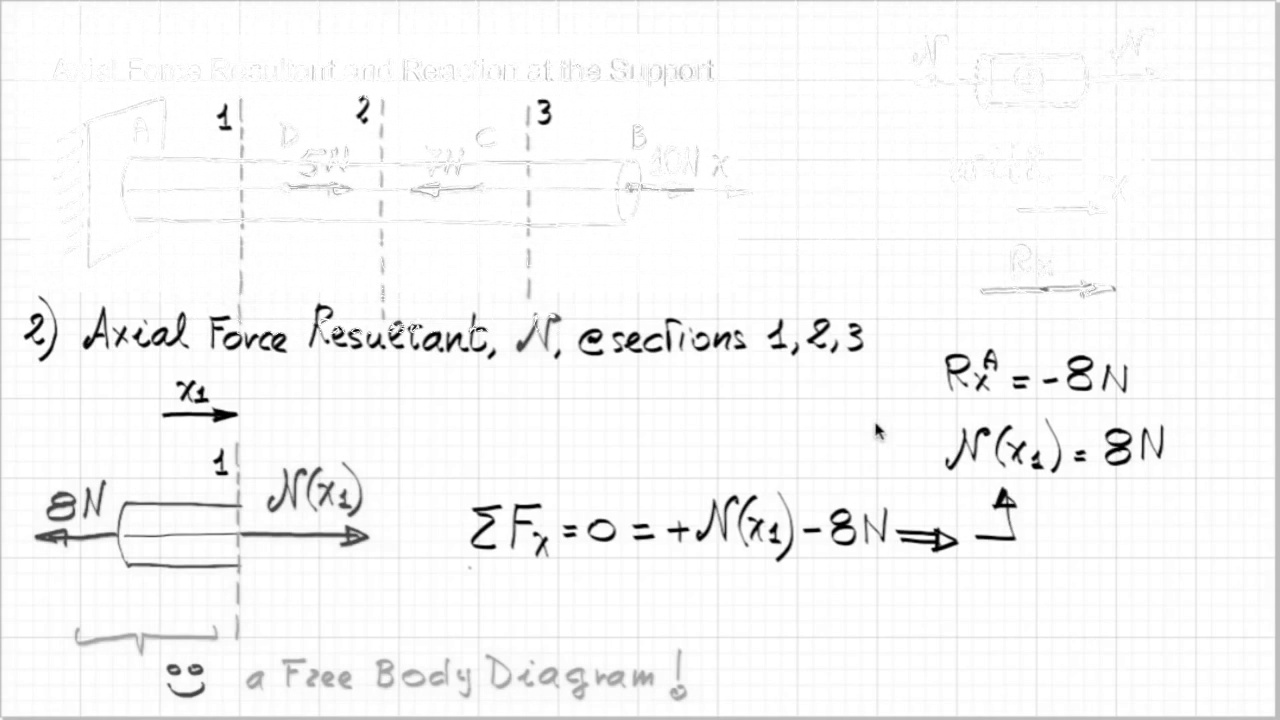 Axial Force Resultant and Reaction at the Support
N N
1 2 3
A D C B
5N 7N 10N x
x
Rx
2) Axial Force Resultant, N, @sections 1,2,3
x1
Rx^A = -8N
N(x1) = 8N
1
8N N(x1)
ΣFx = 0 = +N(x1) - 8N ⇒
a Free Body Diagram!